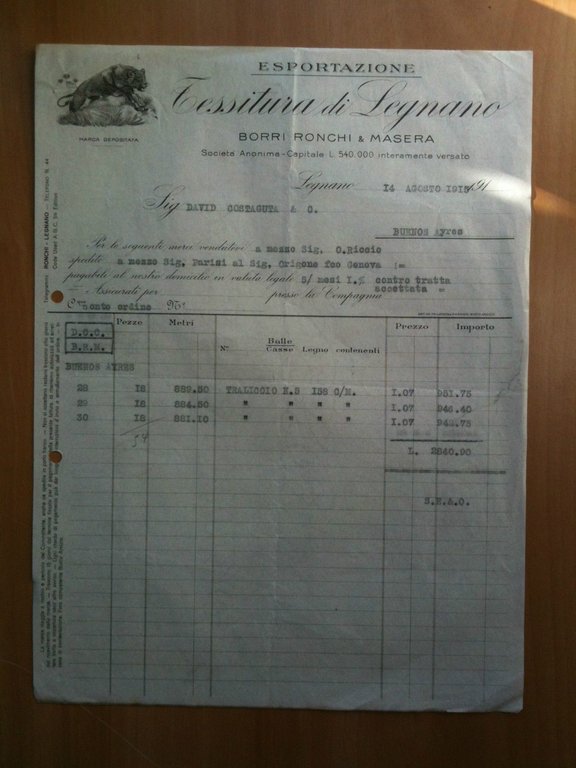 ESPORTAZIONE
Tessitura di Legnano
MARCA DEPOSITATA
BORRI RONCHI & MASERA
Società Anonima - Capitale L. 540.000 interamente versato
Legnano 14 AGOSTO 1915 191
Sig DAVID COSTAGUTA & C.
BUENOS Ayres
Per le seguenti merci vendutevi a mezzo Sig. O.Riccio
spedite a mezzo Sig. Parisi al Sig. Origone fco Genova :=
pagabile al nostro domicilio in valuta legale 5/mesi I.% contro tratta
= Assicurati per presso la Compagnia accettata =
Conto ordine N°
Telegrammi: RONCHI - LEGNANO - TELEFONO N. 44
Pezze Metri N° Balle Casse Legno contenenti Prezzo Importo
D.C.C.
B.R.M.
BUENOS AYRES
28 18 889.50 TRALICCIO N.5 158 C/M. I.07 951.75
29 18 884.50 " " " I.07 946.40
30 18 881.10 " " " I.07 942.75
54
L. 2840.90
S.E.&O.